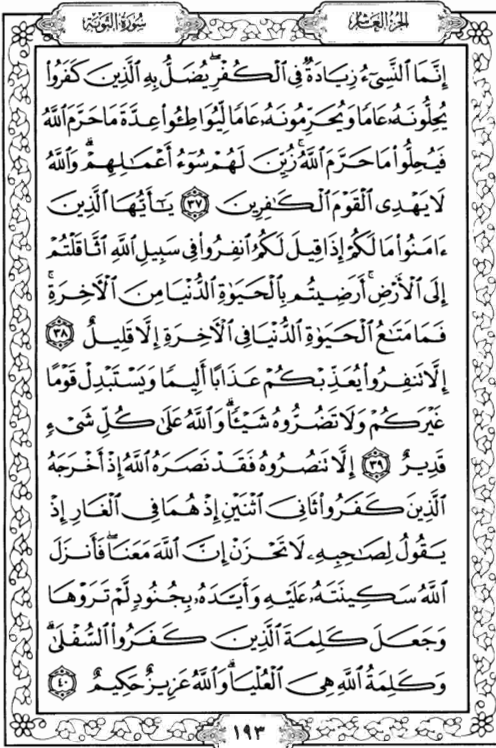 الجزء العاشر
سورة التوبة
إِنَّمَا النَّسِىٓءُ زِيَادَةٌ فِى الْكُفْرِ ۖ يُضَلُّ بِهِ الَّذِينَ كَفَرُواْ
يُحِلُّونَهُۥ عَامًا وَيُحَرِّمُونَهُۥ عَامًا لِّيُوَاطِـُٔواْ عِدَّةَ مَا حَرَّمَ اللَّهُ
فَيُحِلُّواْ مَا حَرَّمَ اللَّهُ ۚ زُيِّنَ لَهُمْ سُوٓءُ أَعْمَـٰلِهِمْ ۗ وَاللَّهُ
لَا يَهْدِى الْقَوْمَ الْكَـٰفِرِينَ ٣٧ يَـٰٓأَيُّهَا الَّذِينَ
ءَامَنُواْ مَا لَكُمْ إِذَا قِيلَ لَكُمُ انفِرُواْ فِى سَبِيلِ اللَّهِ اثَّاقَلْتُمْ
إِلَى الْأَرْضِ ۚ أَرَضِيتُم بِالْحَيَوٰةِ الدُّنْيَا مِنَ الْـَٔاخِرَةِ ۚ
فَمَا مَتَـٰعُ الْحَيَوٰةِ الدُّنْيَا فِى الْـَٔاخِرَةِ إِلَّا قَلِيلٌ ٣٨
إِلَّا تَنفِرُواْ يُعَذِّبْكُمْ عَذَابًا أَلِيمًا وَيَسْتَبْدِلْ قَوْمًا
غَيْرَكُمْ وَلَا تَضُرُّوهُ شَيْـًٔا ۗ وَاللَّهُ عَلَىٰ كُلِّ شَىْءٍ
قَدِيرٌ ٣٩ إِلَّا تَنصُرُوهُ فَقَدْ نَصَرَهُ اللَّهُ إِذْ أَخْرَجَهُ
الَّذِينَ كَفَرُواْ ثَانِىَ اثْنَيْنِ إِذْ هُمَا فِى الْغَارِ إِذْ
يَقُولُ لِصَـٰحِبِهِۦ لَا تَحْزَنْ إِنَّ اللَّهَ مَعَنَا ۖ فَأَنزَلَ
اللَّهُ سَكِينَتَهُۥ عَلَيْهِ وَأَيَّدَهُۥ بِجُنُودٍ لَّمْ تَرَوْهَا
وَجَعَلَ كَلِمَةَ الَّذِينَ كَفَرُواْ السُّفْلَىٰ ۗ
وَكَلِمَةُ اللَّهِ هِىَ الْعُلْيَا ۗ وَاللَّهُ عَزِيزٌ حَكِيمٌ ٤٠
١٩٣